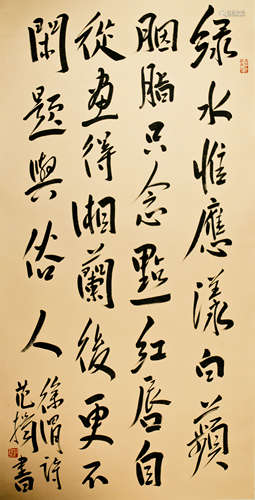 绿水惟應漾白蘋
胭脂只念點紅唇自
從畫得湘蘭後更不
閑題與俗人
徐渭詩
范揚書